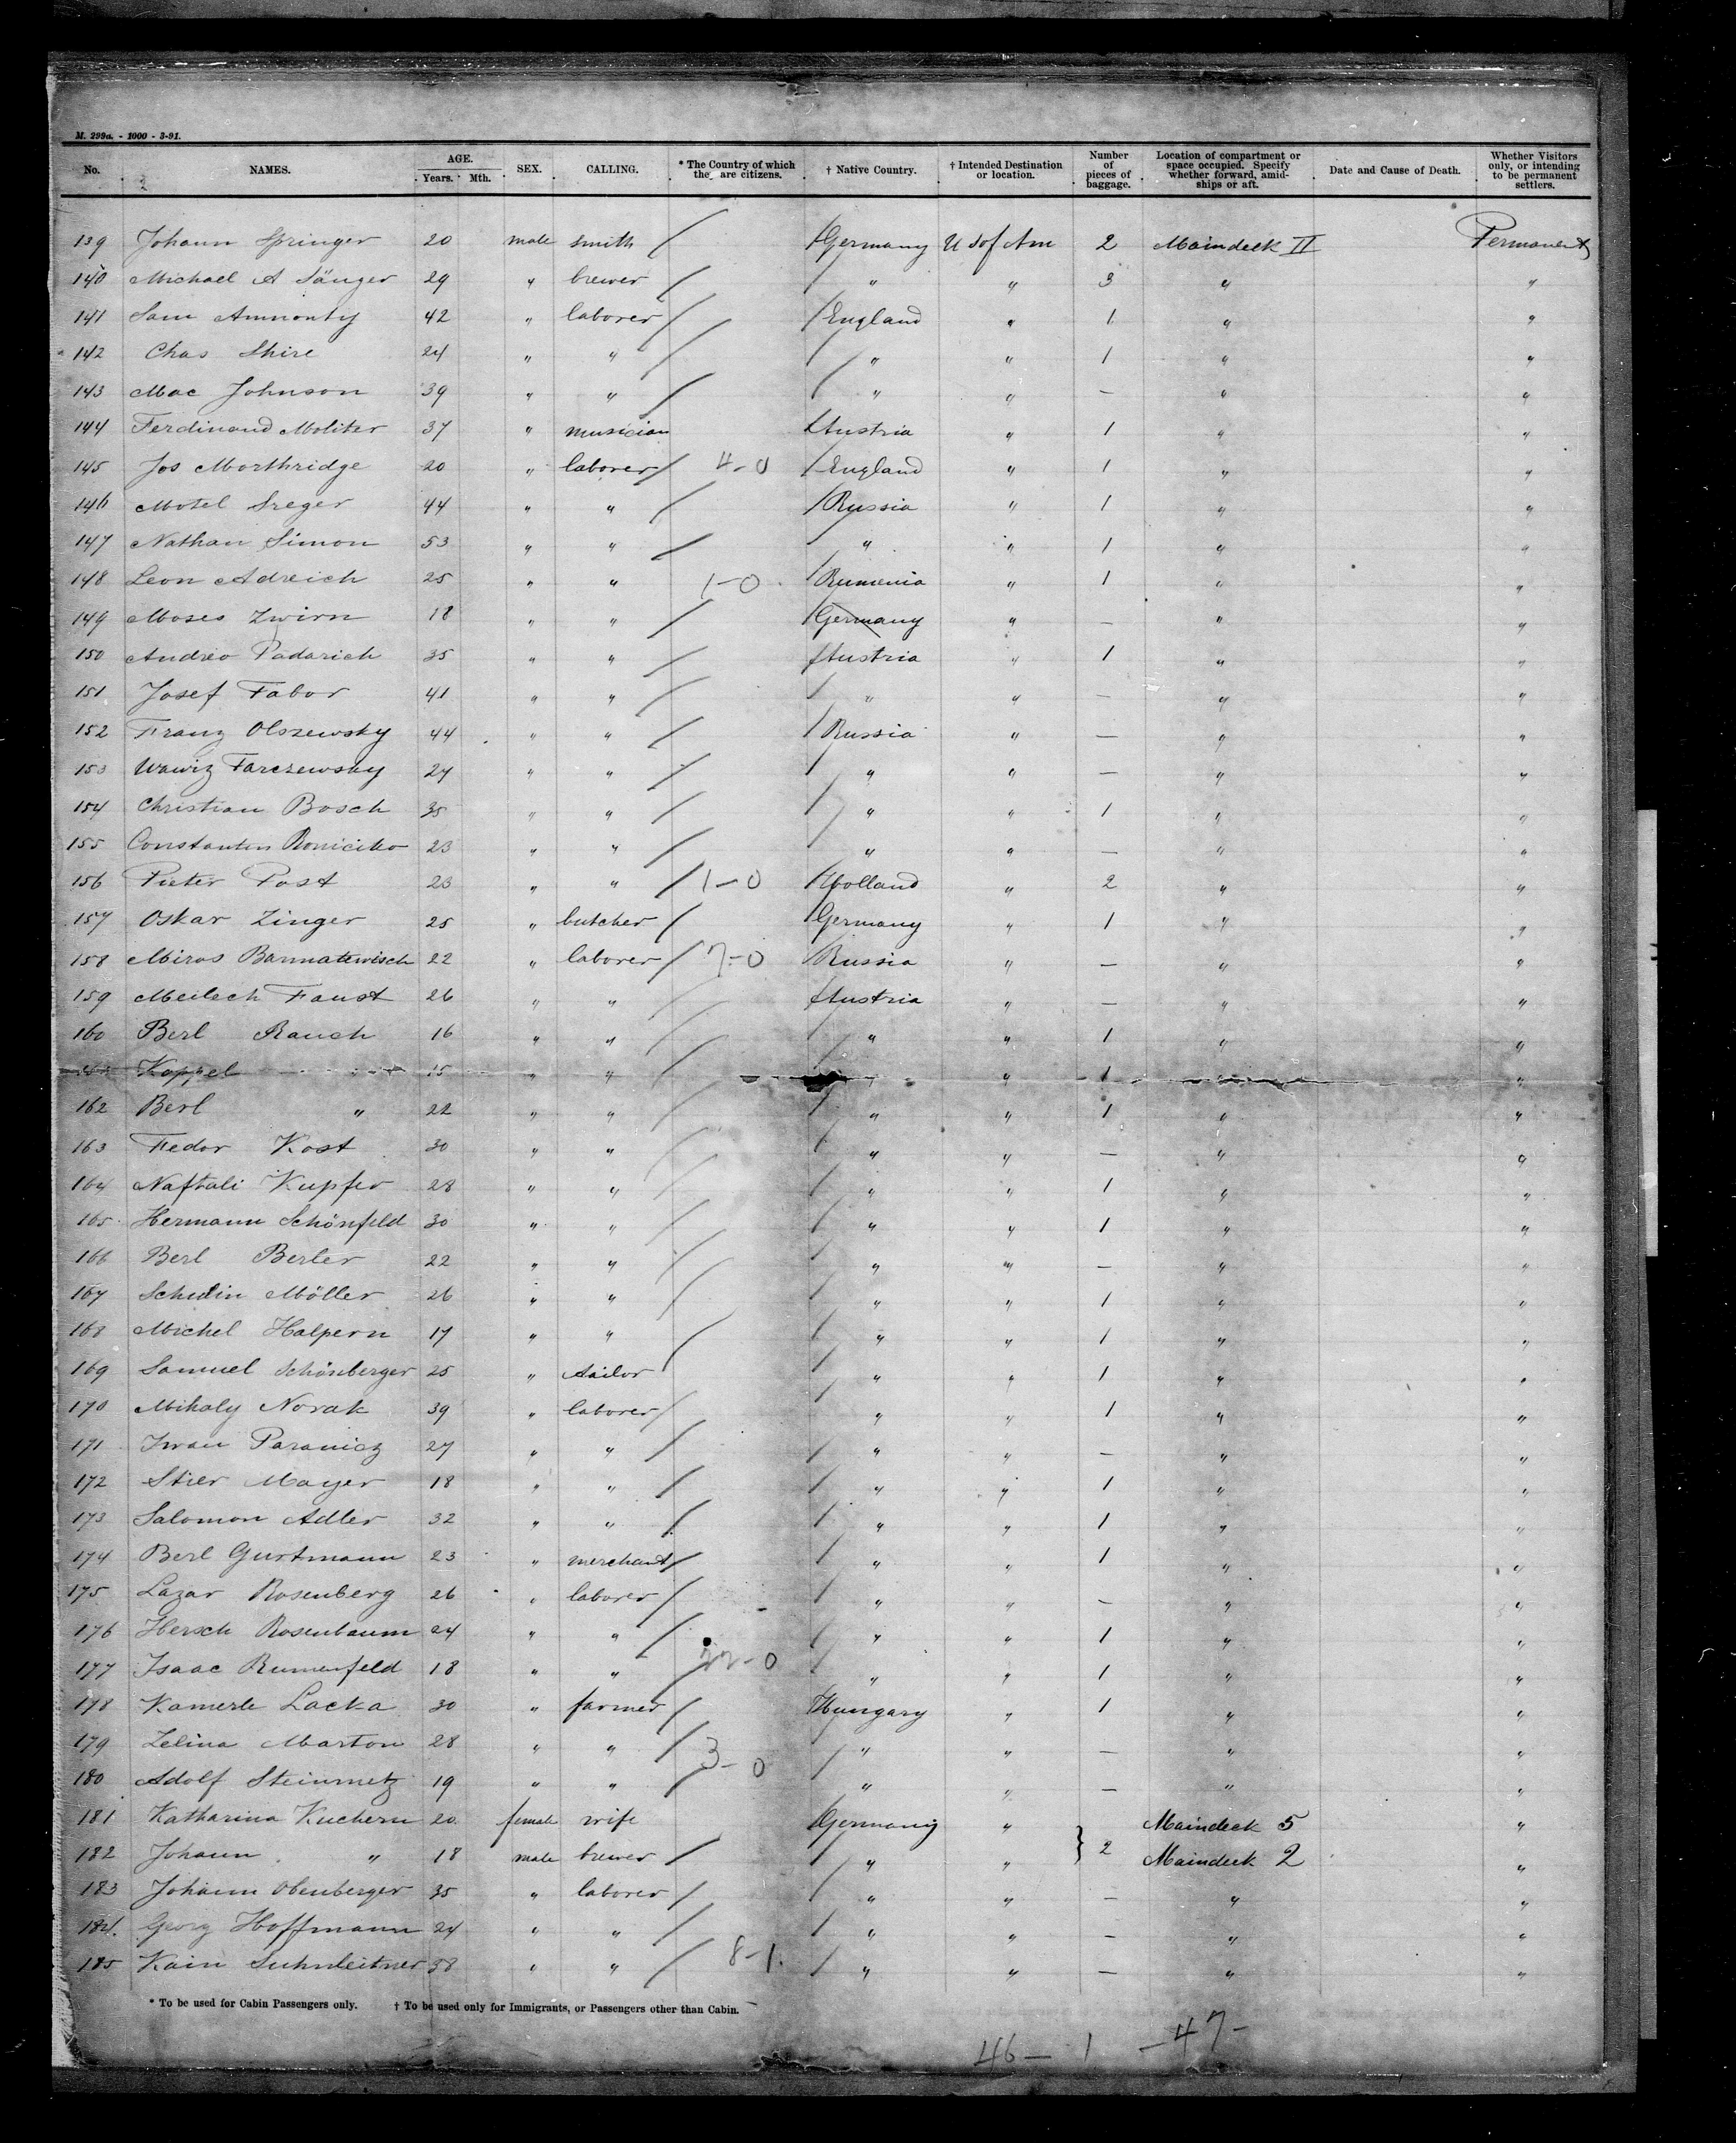 M. 299a. - 1000 - 3-91.
No. NAMES. AGE. Years. Mth. SEX. CALLING. * The Country of which they are citizens. † Native Country. † Intended Destination or location. Number of pieces of baggage. Location of compartment or space occupied. Specify whether forward, amidships or aft. Date and Cause of Death. Whether Visitors only, or intending to be permanent settlers.
139 Johann Springer 20 male smith / Germany U S of Am 2 Maindeck II Permanent
140 Michael A Sänger 29 " brewer / " " 3 " "
141 Sam Ammonty 42 " laborer / England " 1 " "
142 Chas Shire 24 " " / " " 1 " "
143 Mac Johnson 39 " " / " " — " "
144 Ferdinand Moliter 37 " musician Austria " 1 " "
145 Jos Morthridge 20 " laborer / 4-0 England " 1 " "
146 Motel Sreger 44 " " / Russia " 1 " "
147 Nathan Simon 53 " " / " " 1 " "
148 Leon Adreich 25 " " 1-0 Rumenia " 1 " "
149 Moses Zwirn 18 " " / Germany " — " "
150 Andreo Padarich 35 " " / Austria " 1 " "
151 Josef Fabor 41 " " / " " — " "
152 Franz Olszewsky 44 " " / Russia " — " "
153 Wawiz Farczewsky 27 " " / " " — " "
154 Christian Bosch 35 " " / " " 1 " "
155 Constantin 23 " " / " " — " "
156 Pieter Post 23 " " / 1-0 Holland " 2 " "
157 Oskar Zinger 25 " butcher / Germany " 1 " "
158 Miros Barmatewisch 22 " laborer / 7-0 Russia " — " "
159 Meilech Faust 26 " " / Austria " — " "
160 Berl Rauch 16 " " / " " 1 " "
Koppel " 15 " " / " " 1 " "
162 Berl " 22 " " / " " 1 " "
163 Fedor Kost 30 " " / " " — " "
164 Naftali Kupfer 28 " " / " " 1 " "
165 Hermann Schönfeld 30 " " / " " 1 " "
166 Berl Berler 22 " " / " " — " "
167 Schulin Möller 26 " " / " " 1 " "
168 Michel Halpern 17 " " / " " 1 " "
169 Samuel Schönberger 25 " tailor " " 1 " "
170 Mihaly Novak 39 " laborer / " " 1 " "
171 Iwan Paranicz 27 " " / " " — " "
172 Stier Mayer 18 " " / " " 1 " "
173 Salomon Adler 32 " " / " " 1 " "
174 Berl Gurtmann 23 " merchant / " " 1 " "
175 Lazar Rosenberg 26 " laborer / " " — " "
176 Hersch Rosenbaum 24 " " / " " 1 " "
177 Isaac Rumenfeld 18 " " / 22-0 " " 1 " "
178 Kamerle Lacka 30 " farmer / Hungary " 1 " "
179 Zelina Marton 28 " " / 3-0 " " — " "
180 Adolf Steinmetz 19 " " / " " — " "
181 Katharina Kuchern 20 female wife Germany " } 2 Maindeck 5 "
182 Johann " 18 male brewer / " " Maindeck 2 "
183 Johann Obenberger 35 " laborer / " " — " "
184 Georg Hoffmann 24 " " / " " — " "
185 Kain Suhnleitner 38 " " / 8-1. " " — " "
* To be used for Cabin Passengers only. † To be used only for Immigrants, or Passengers other than Cabin.
46— 1 —47—